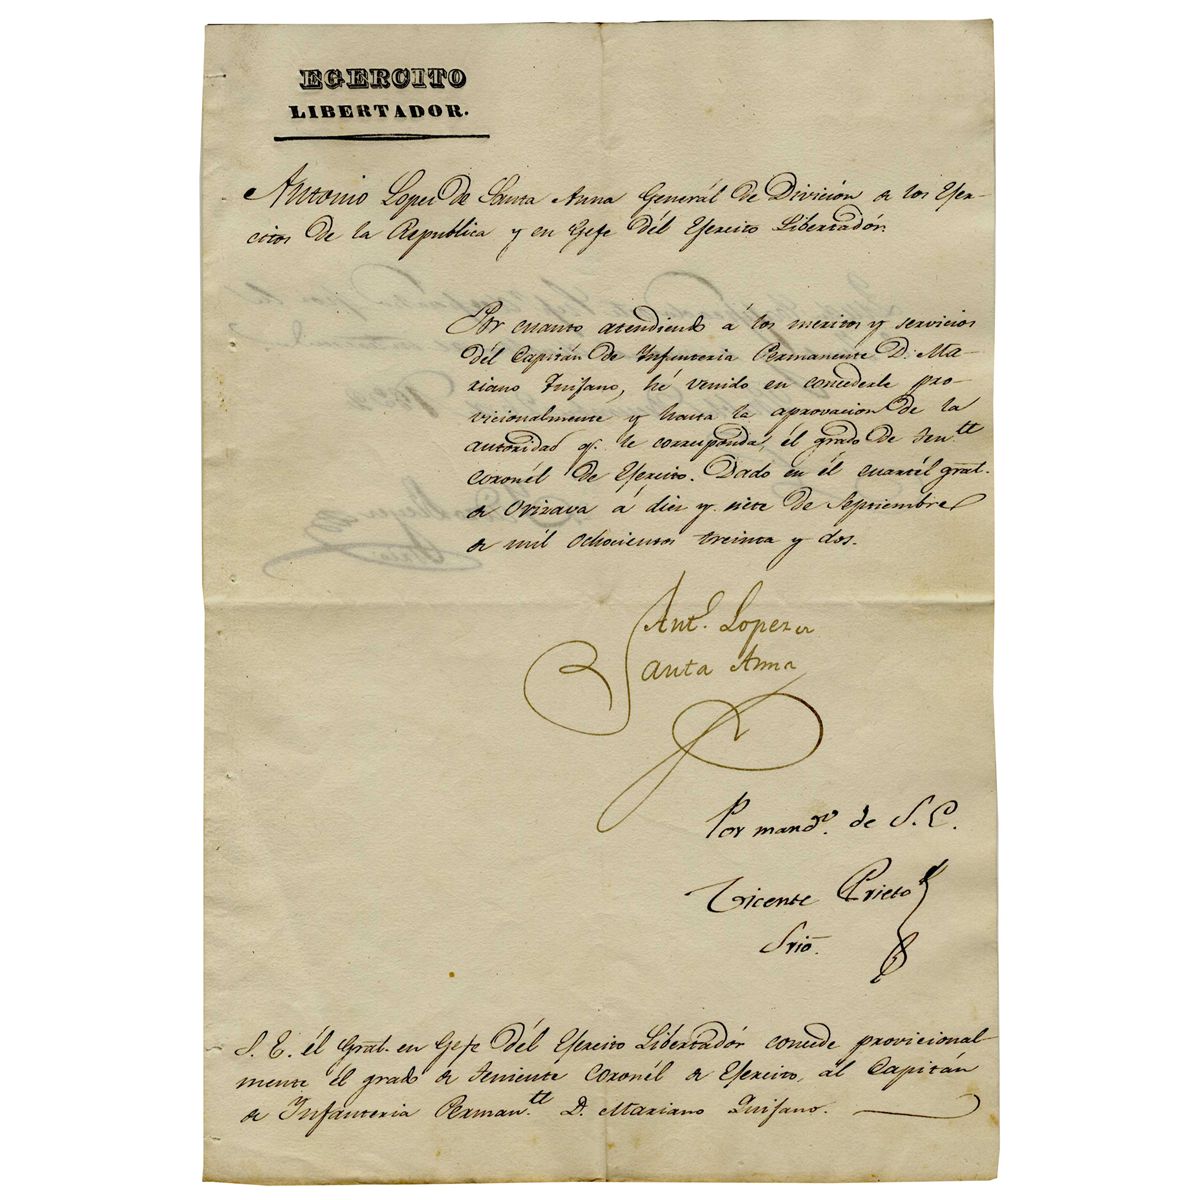 EGERCITO
LIBERTADOR.
Antonio Lopez de Santa Anna Generál de Divición de los Ejer-
citos de la Republica y en Gefe dél Ejercito Libertadór.
Por cuanto atendiendo á los meritos y servicios
dél Capitán de Infanteria Permanente D. Ma-
riano Quijano, hé venido en concederle pro-
vicionalmente y hasta la aprovacion de la
autoridad q.e le corresponda, él grado de Ten.tte
Coronél de Ejercito. Dado en él cuartél gral.
de Orizava á diez y siete de Septiembre
de mil ochocientos treinta y dos.
Ant.o Lopez de
Santa Anna
Por mand.o de S. E.
Vicente Prieto
Srio.
S. E. él Gral. en Gefe dél Ejercito Libertadór concede provicional-
mente él grado de Teniente Coronél de Ejercito, al Capitán
de Infanteria Perman.tte D. Mariano Quijano.